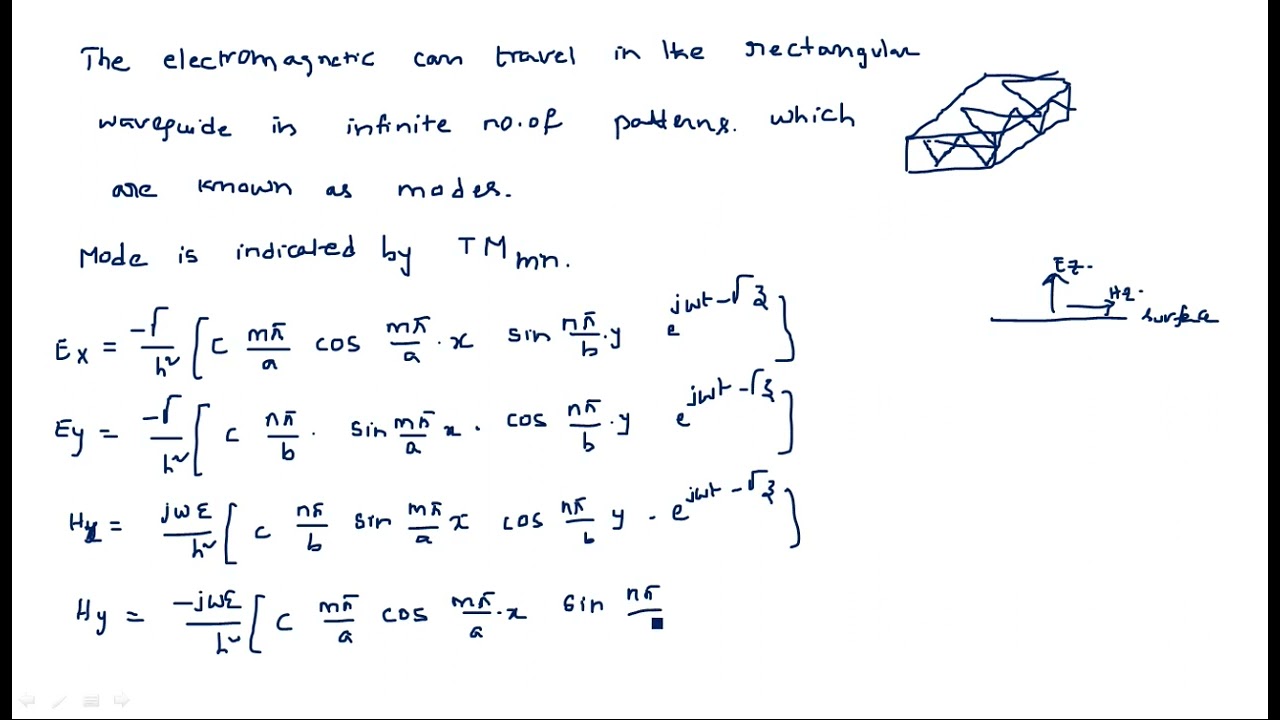 The electromagnetic can travel in the rectangular
waveguide in infinite no.of patterns. which
are known as modes.
Mode is indicated by TMmn.
Ez.
Hz.
surface
Ex = -Γ/h² [ C mπ/a cos mπ/a . x sin nπ/b . y e^(jωt-Γz) ]
Ey = -Γ/h² [ C nπ/b . sin mπ/a x . cos nπ/b . y e^(jωt-Γz) ]
Hx = jωε/h² [ C nπ/b sin mπ/a x cos nπ/b y . e^(jωt-Γz) ]
Hy = -jωε/h² [ C mπ/a cos mπ/a . x sin nπ/